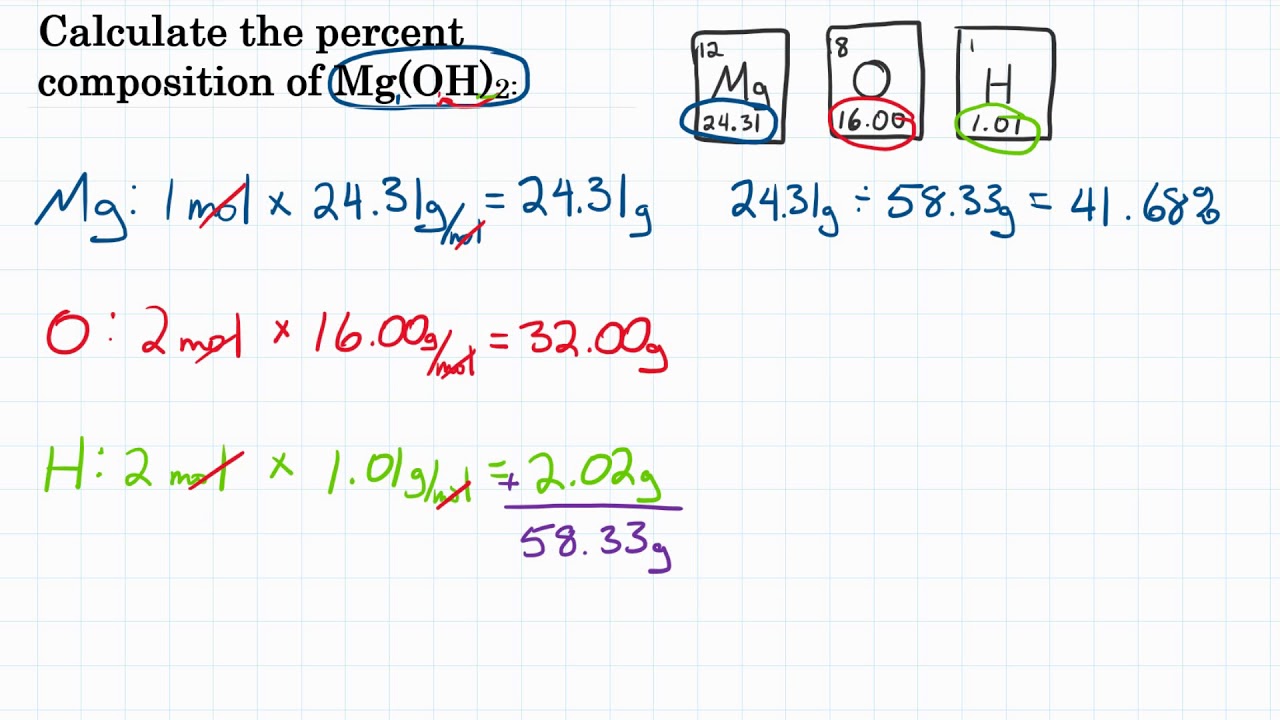 Calculate the percent
composition of Mg(OH)₂:
12 8 1
Mg O H
24.31 16.00 1.01
Mg: 1 mol × 24.31g/mol = 24.31g 24.31g ÷ 58.33g = 41.68%
O: 2 mol × 16.00g/mol = 32.00g
H: 2 mol × 1.01g/mol = + 2.02g
58.33g